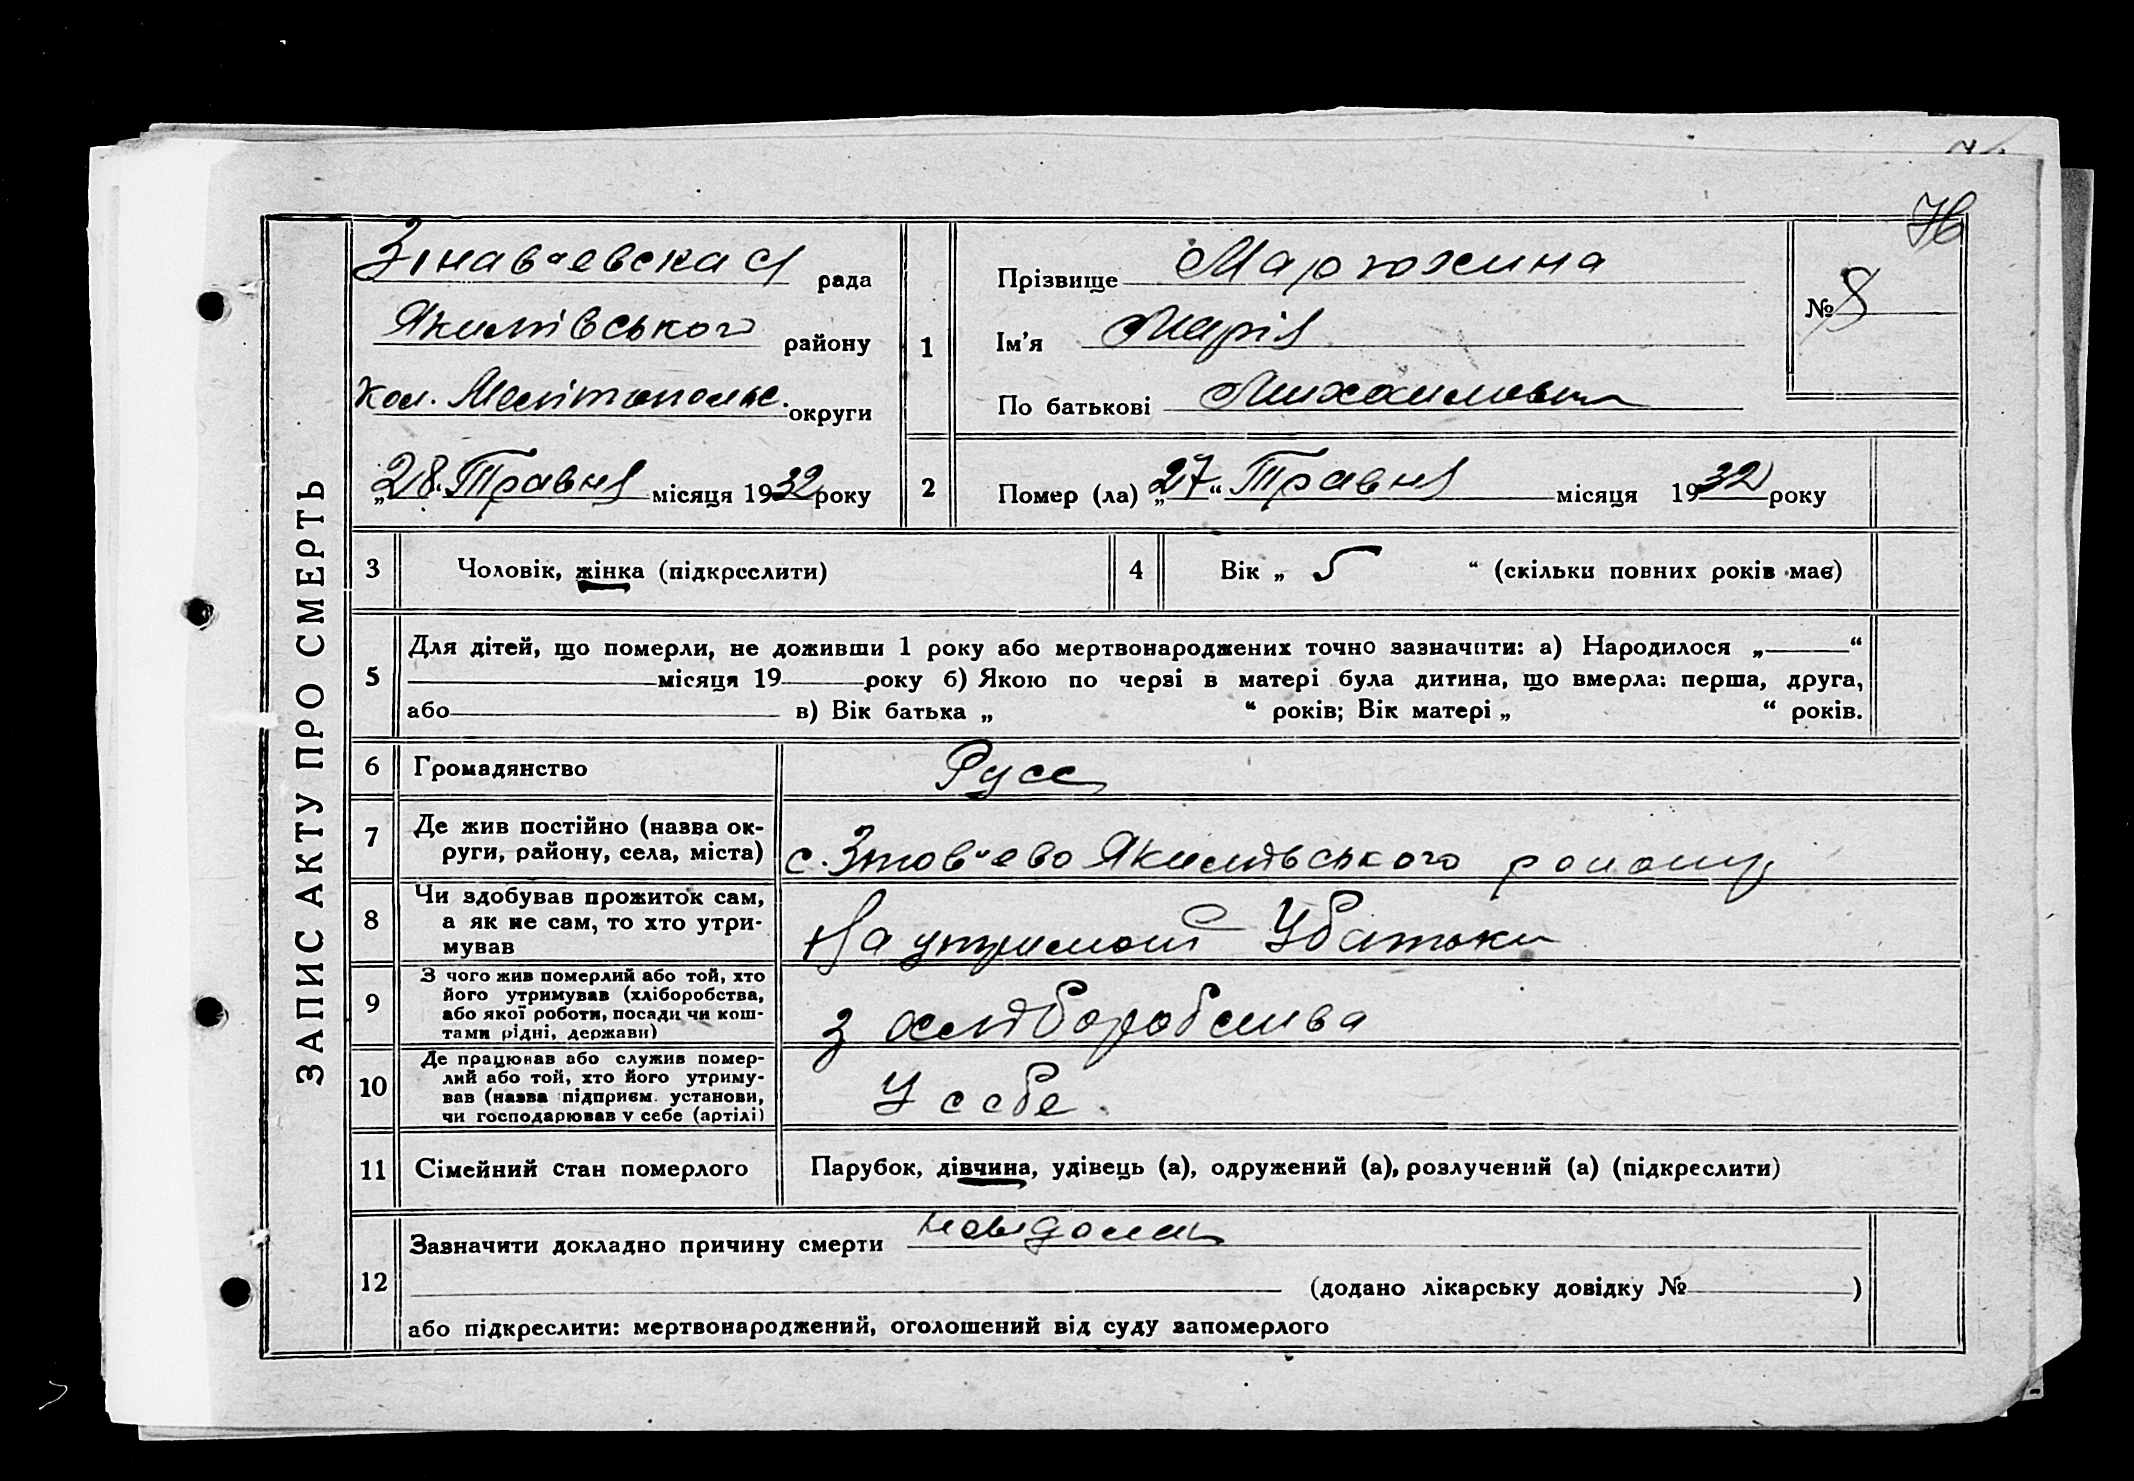 76
ЗАПИС АКТУ ПРО СМЕРТЬ
рада
Якимівського району
кол. Мелітопольс. округи
„28“ Травня місяця 1932 року
1
Прізвище Марюхина
Ім'я Марія
По батькові Михаиловна
№ 8
2
Помер (ла) „27“ Травня місяця 1932 року
3 Чоловік, жінка (підкреслити)
4 Вік „ 5 “ (скільки повних років має)
5
Для дітей, що померли, не доживши 1 року або мертвонароджених точно зазначити: а) Народилося „ “
місяця 19 року б) Якою по черзі в матері була дитина, що вмерла: перша, друга,
або в) Вік батька „ “ років; Вік матері „ “ років.
6 Громадянство Русс
7 Де жив постійно (назва ок-
руги, району, села, міста) с. Якимівського району
8 Чи здобував прожиток сам,
а як не сам, то хто утри-
мував На утримані У батьки
9 З чого жив померлий або той, хто
його утримував (хліборобства,
або якої роботи, посади чи кош-
тами рідні, держави) з хліборобства
10 Де працював або служив помер-
лий або той, хто його утриму-
вав (назва підприєм. установи,
чи господарював у себе (артілі) У себе
11 Сімейний стан померлого Парубок, дівчина, удівець (а), одружений (а), розлучений (а) (підкреслити)
12
Зазначити докладно причину смерти
(додано лікарську довідку № )
або підкреслити: мертвонароджений, оголошений від суду запомерлого